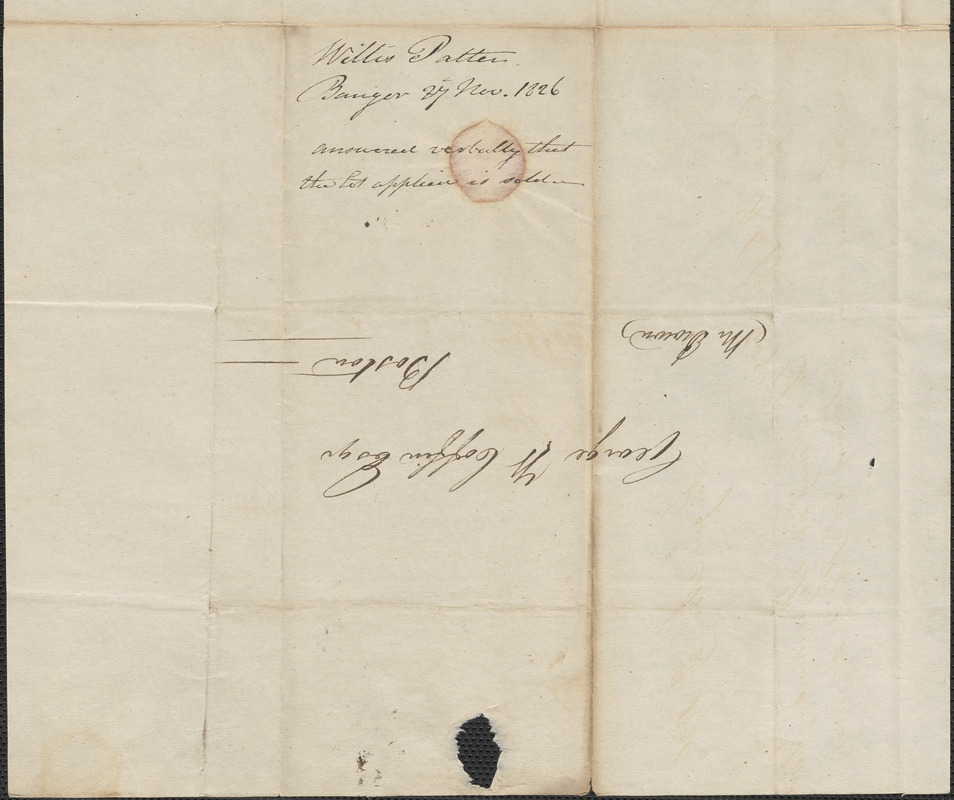 Willis Patten
Bangor 27 Nov. 1826
answered verbally that
the lot applied is sold
George W Coffin Esqr
Boston
(Mr Brown)